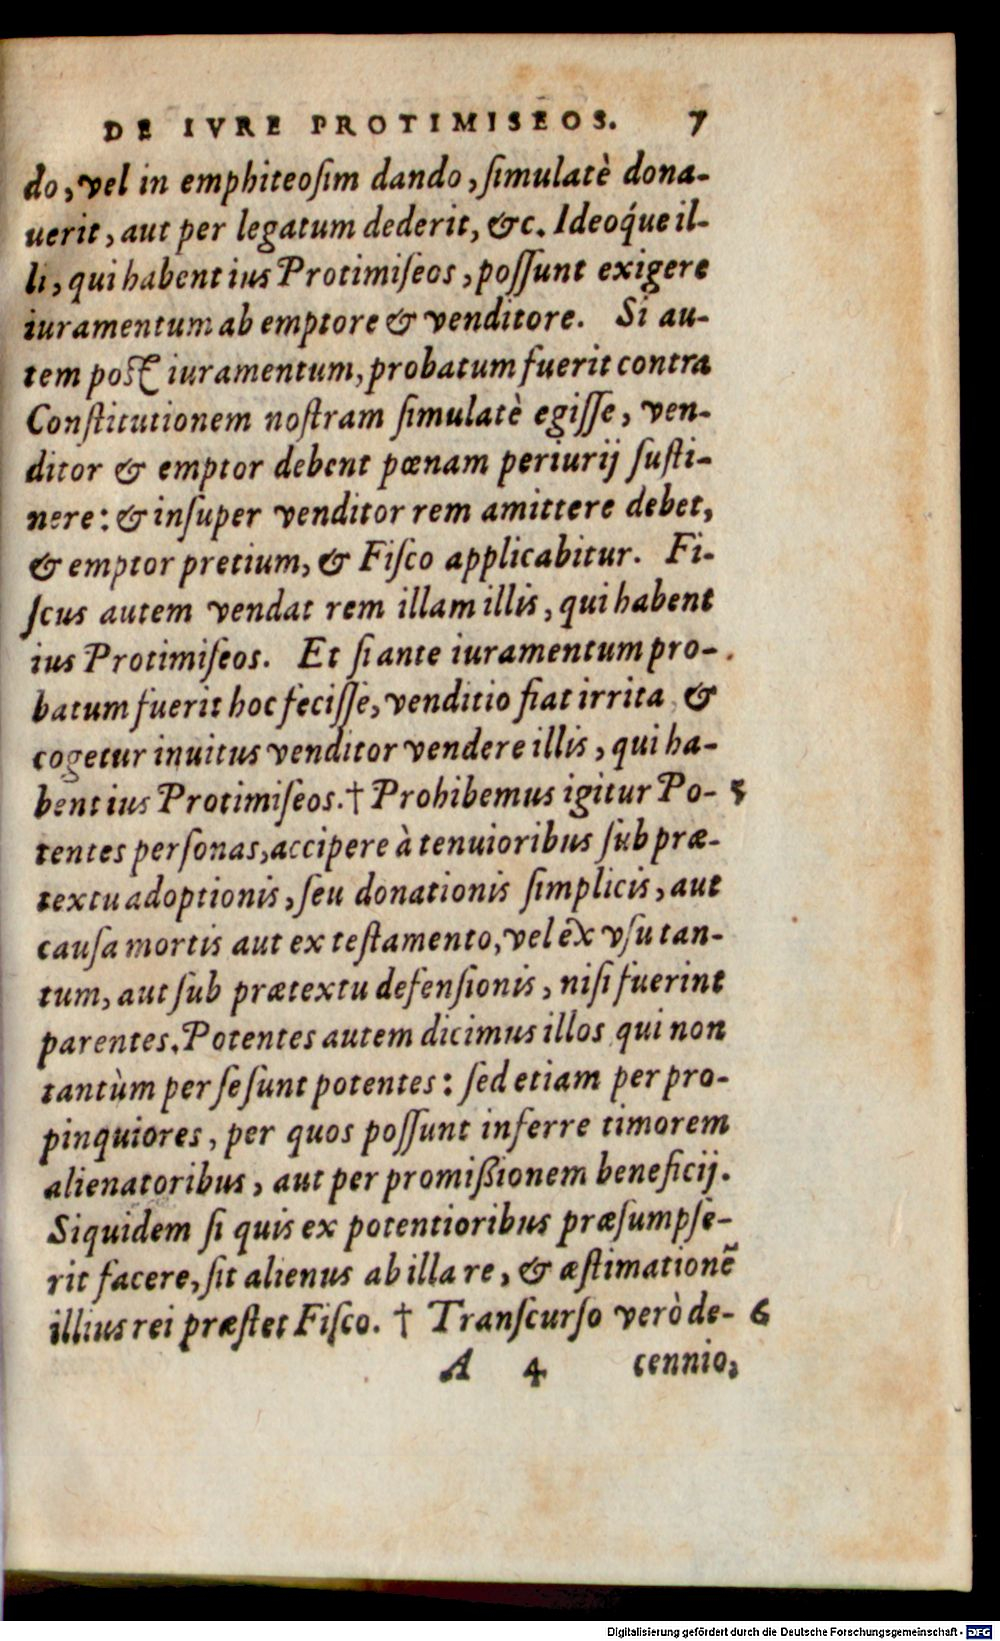 DE IVRE PROTIMISEOS. 7
do, vel in emphiteosim dando, simulatè dona-
uerit, aut per legatum dederit, &c. Ideoq́ue il-
li, qui habent ius Protimiseos, possunt exigere
iuramentum ab emptore & venditore. Si au-
tem post iuramentum, probatum fuerit contra
Constitutionem nostram simulatè egisse, ven-
ditor & emptor debent pœnam periurij susti-
nere: & insuper venditor rem amittere debet,
& emptor pretium, & Fisco applicabitur. Fi-
scus autem vendat rem illam illis, qui habent
ius Protimiseos. Et si ante iuramentum pro-
batum fuerit hoc fecisse, venditio fiat irrita, &
cogetur inuitus venditor vendere illis, qui ha-
bent ius Protimiseos. † Prohibemus igitur Po- 5
tentes personas, accipere à tenuioribus sub præ-
textu adoptionis, seu donationis simplicis, aut
causa mortis aut ex testamento, vel ex vsu tan-
tum, aut sub prætextu defensionis, nisi fuerint
parentes. Potentes autem dicimus illos qui non
tantùm per se sunt potentes: sed etiam per pro-
pinquiores, per quos possunt inferre timorem
alienatoribus, aut per promißionem beneficij.
Siquidem si quis ex potentioribus præsumpse-
rit facere, sit alienus ab illa re, & æstimationē
illius rei præstet Fisco. † Transcurso verò de- 6
A 4 cennio,
Digitalisierung gefördert durch die Deutsche Forschungsgemeinschaft - DFG